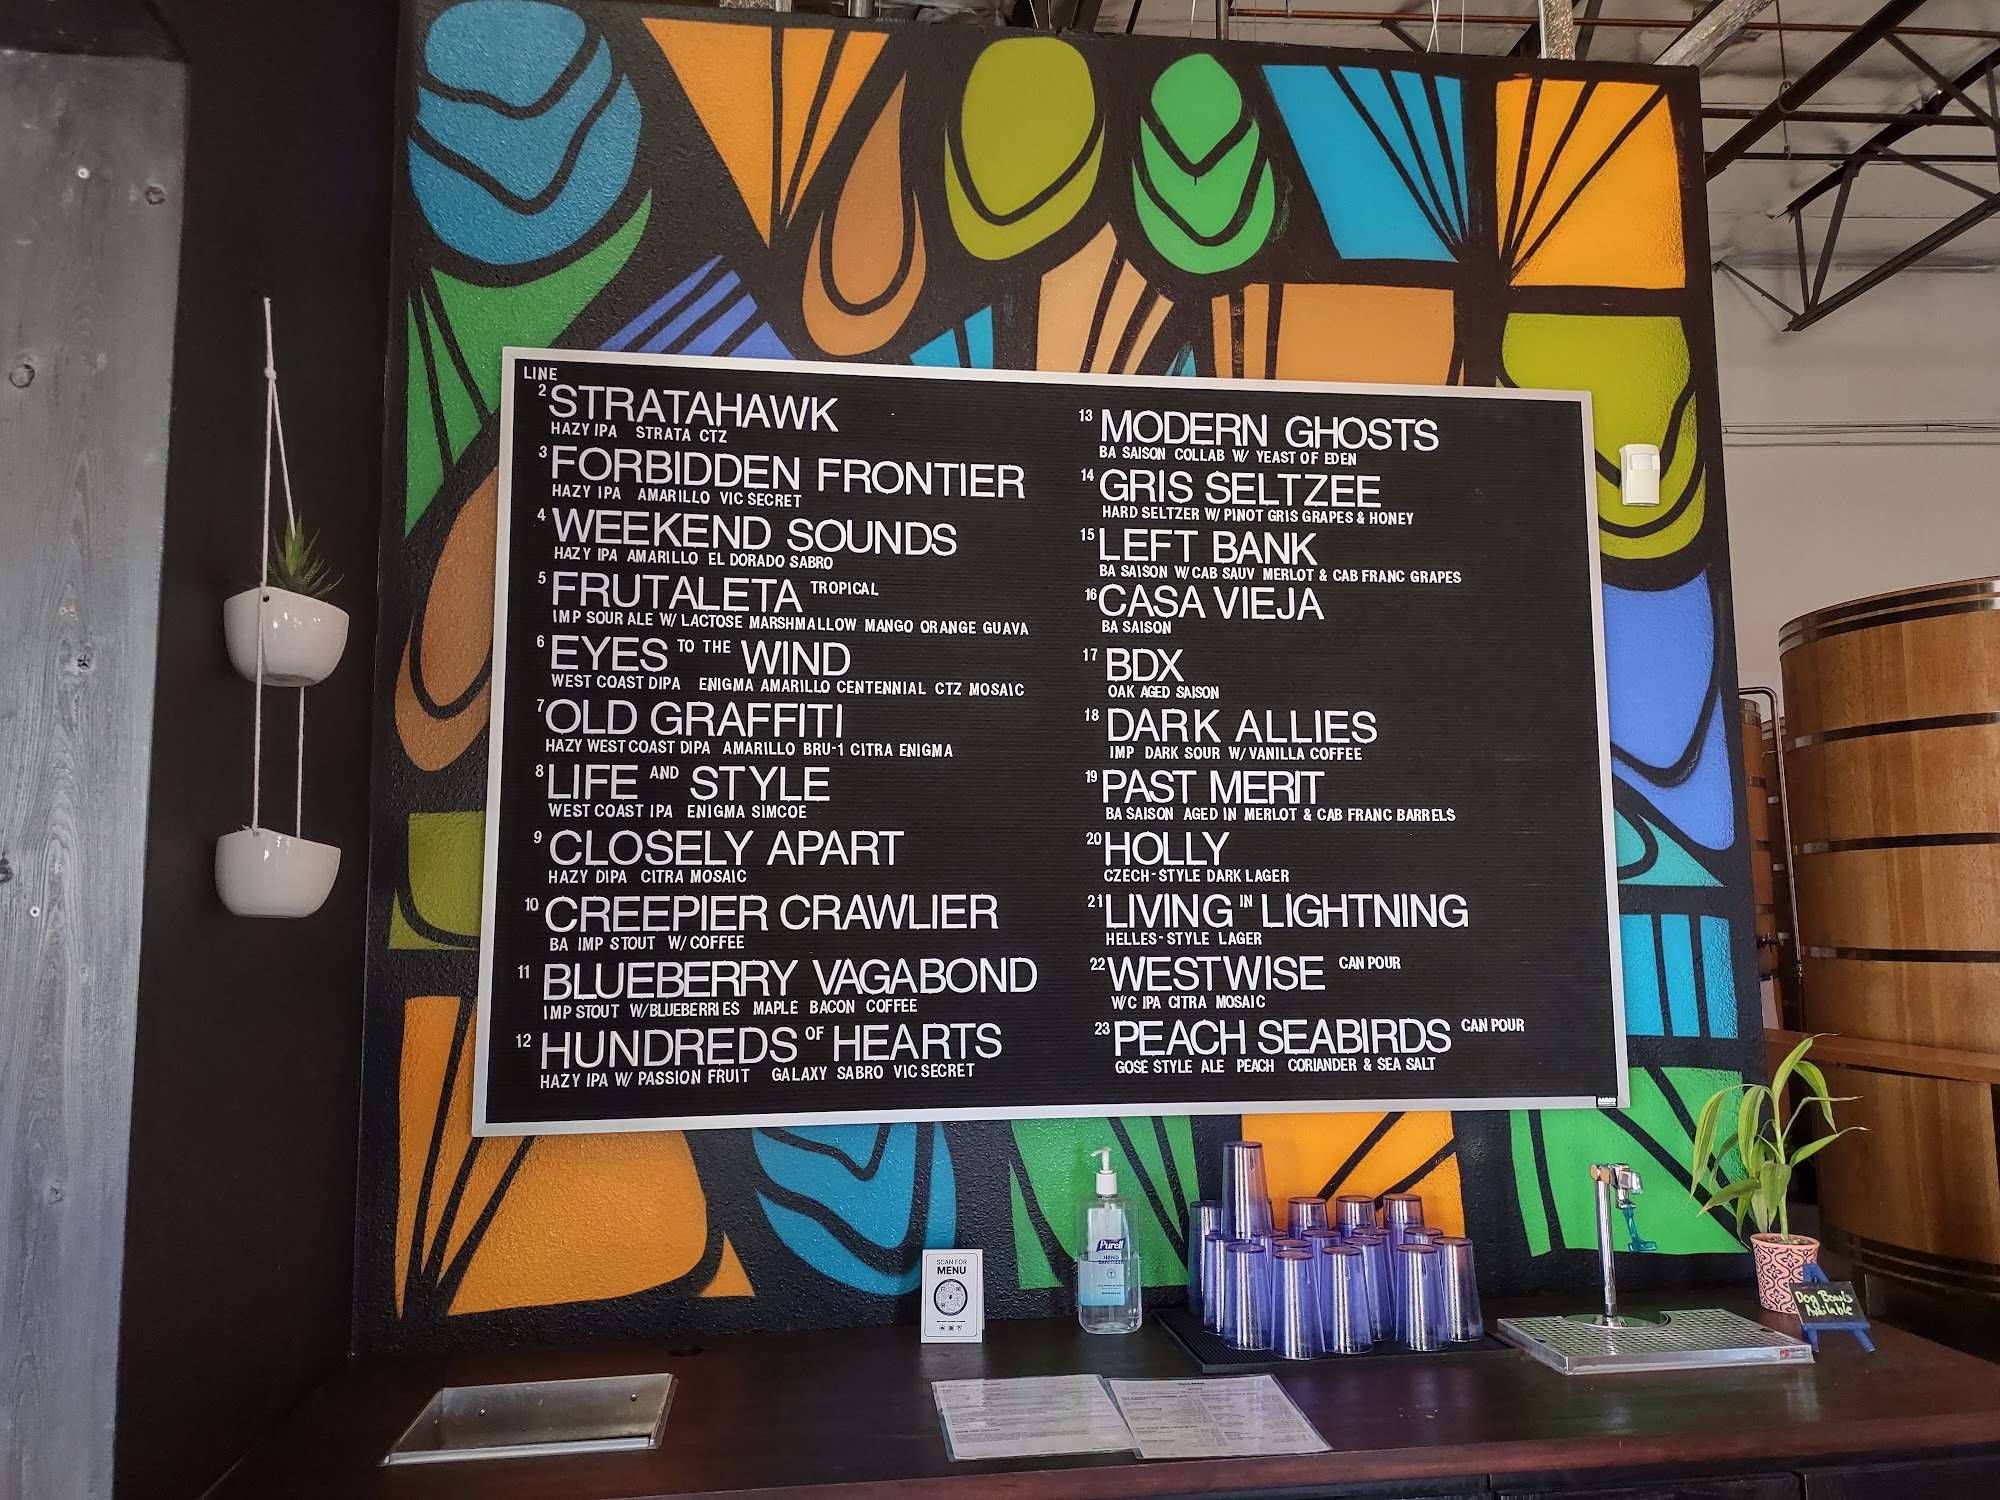 LINE
2 STRATAHAWK
HAZY IPA STRATA CTZ
3 FORBIDDEN FRONTIER
HAZY IPA AMARILLO VIC SECRET
4 WEEKEND SOUNDS
HAZY IPA AMARILLO EL DORADO SABRO
5 FRUTALETA TROPICAL
IMP SOUR ALE W/ LACTOSE MARSHMALLOW MANGO ORANGE GUAVA
6 EYES TO THE WIND
WEST COAST DIPA ENIGMA AMARILLO CENTENNIAL CTZ MOSAIC
7 OLD GRAFFITI
HAZY WEST COAST DIPA AMARILLO BRU-1 CITRA ENIGMA
8 LIFE AND STYLE
WEST COAST IPA ENIGMA SIMCOE
9 CLOSELY APART
HAZY DIPA CITRA MOSAIC
10 CREEPIER CRAWLIER
BA IMP STOUT W/ COFFEE
11 BLUEBERRY VAGABOND
IMP STOUT W/BLUEBERRIES MAPLE BACON COFFEE
12 HUNDREDS OF HEARTS
HAZY IPA W/ PASSION FRUIT GALAXY SABRO VIC SECRET
13 MODERN GHOSTS
BA SAISON COLLAB W/ YEAST OF EDEN
14 GRIS SELTZEE
HARD SELTZER W/ PINOT GRIS GRAPES & HONEY
15 LEFT BANK
BA SAISON W/ CAB SAUV MERLOT & CAB FRANC GRAPES
16 CASA VIEJA
BA SAISON
17 BDX
OAK AGED SAISON
18 DARK ALLIES
IMP DARK SOUR W/ VANILLA COFFEE
19 PAST MERIT
BA SAISON AGED IN MERLOT & CAB FRANC BARRELS
20 HOLLY
CZECH-STYLE DARK LAGER
21 LIVING IN LIGHTNING
HELLES-STYLE LAGER
22 WESTWISE CAN POUR
W/C IPA CITRA MOSAIC
23 PEACH SEABIRDS CAN POUR
GOSE STYLE ALE PEACH CORIANDER & SEA SALT
SCAN FOR
MENU
Purell
HAND
SANITIZER
Dog Bowls
Available